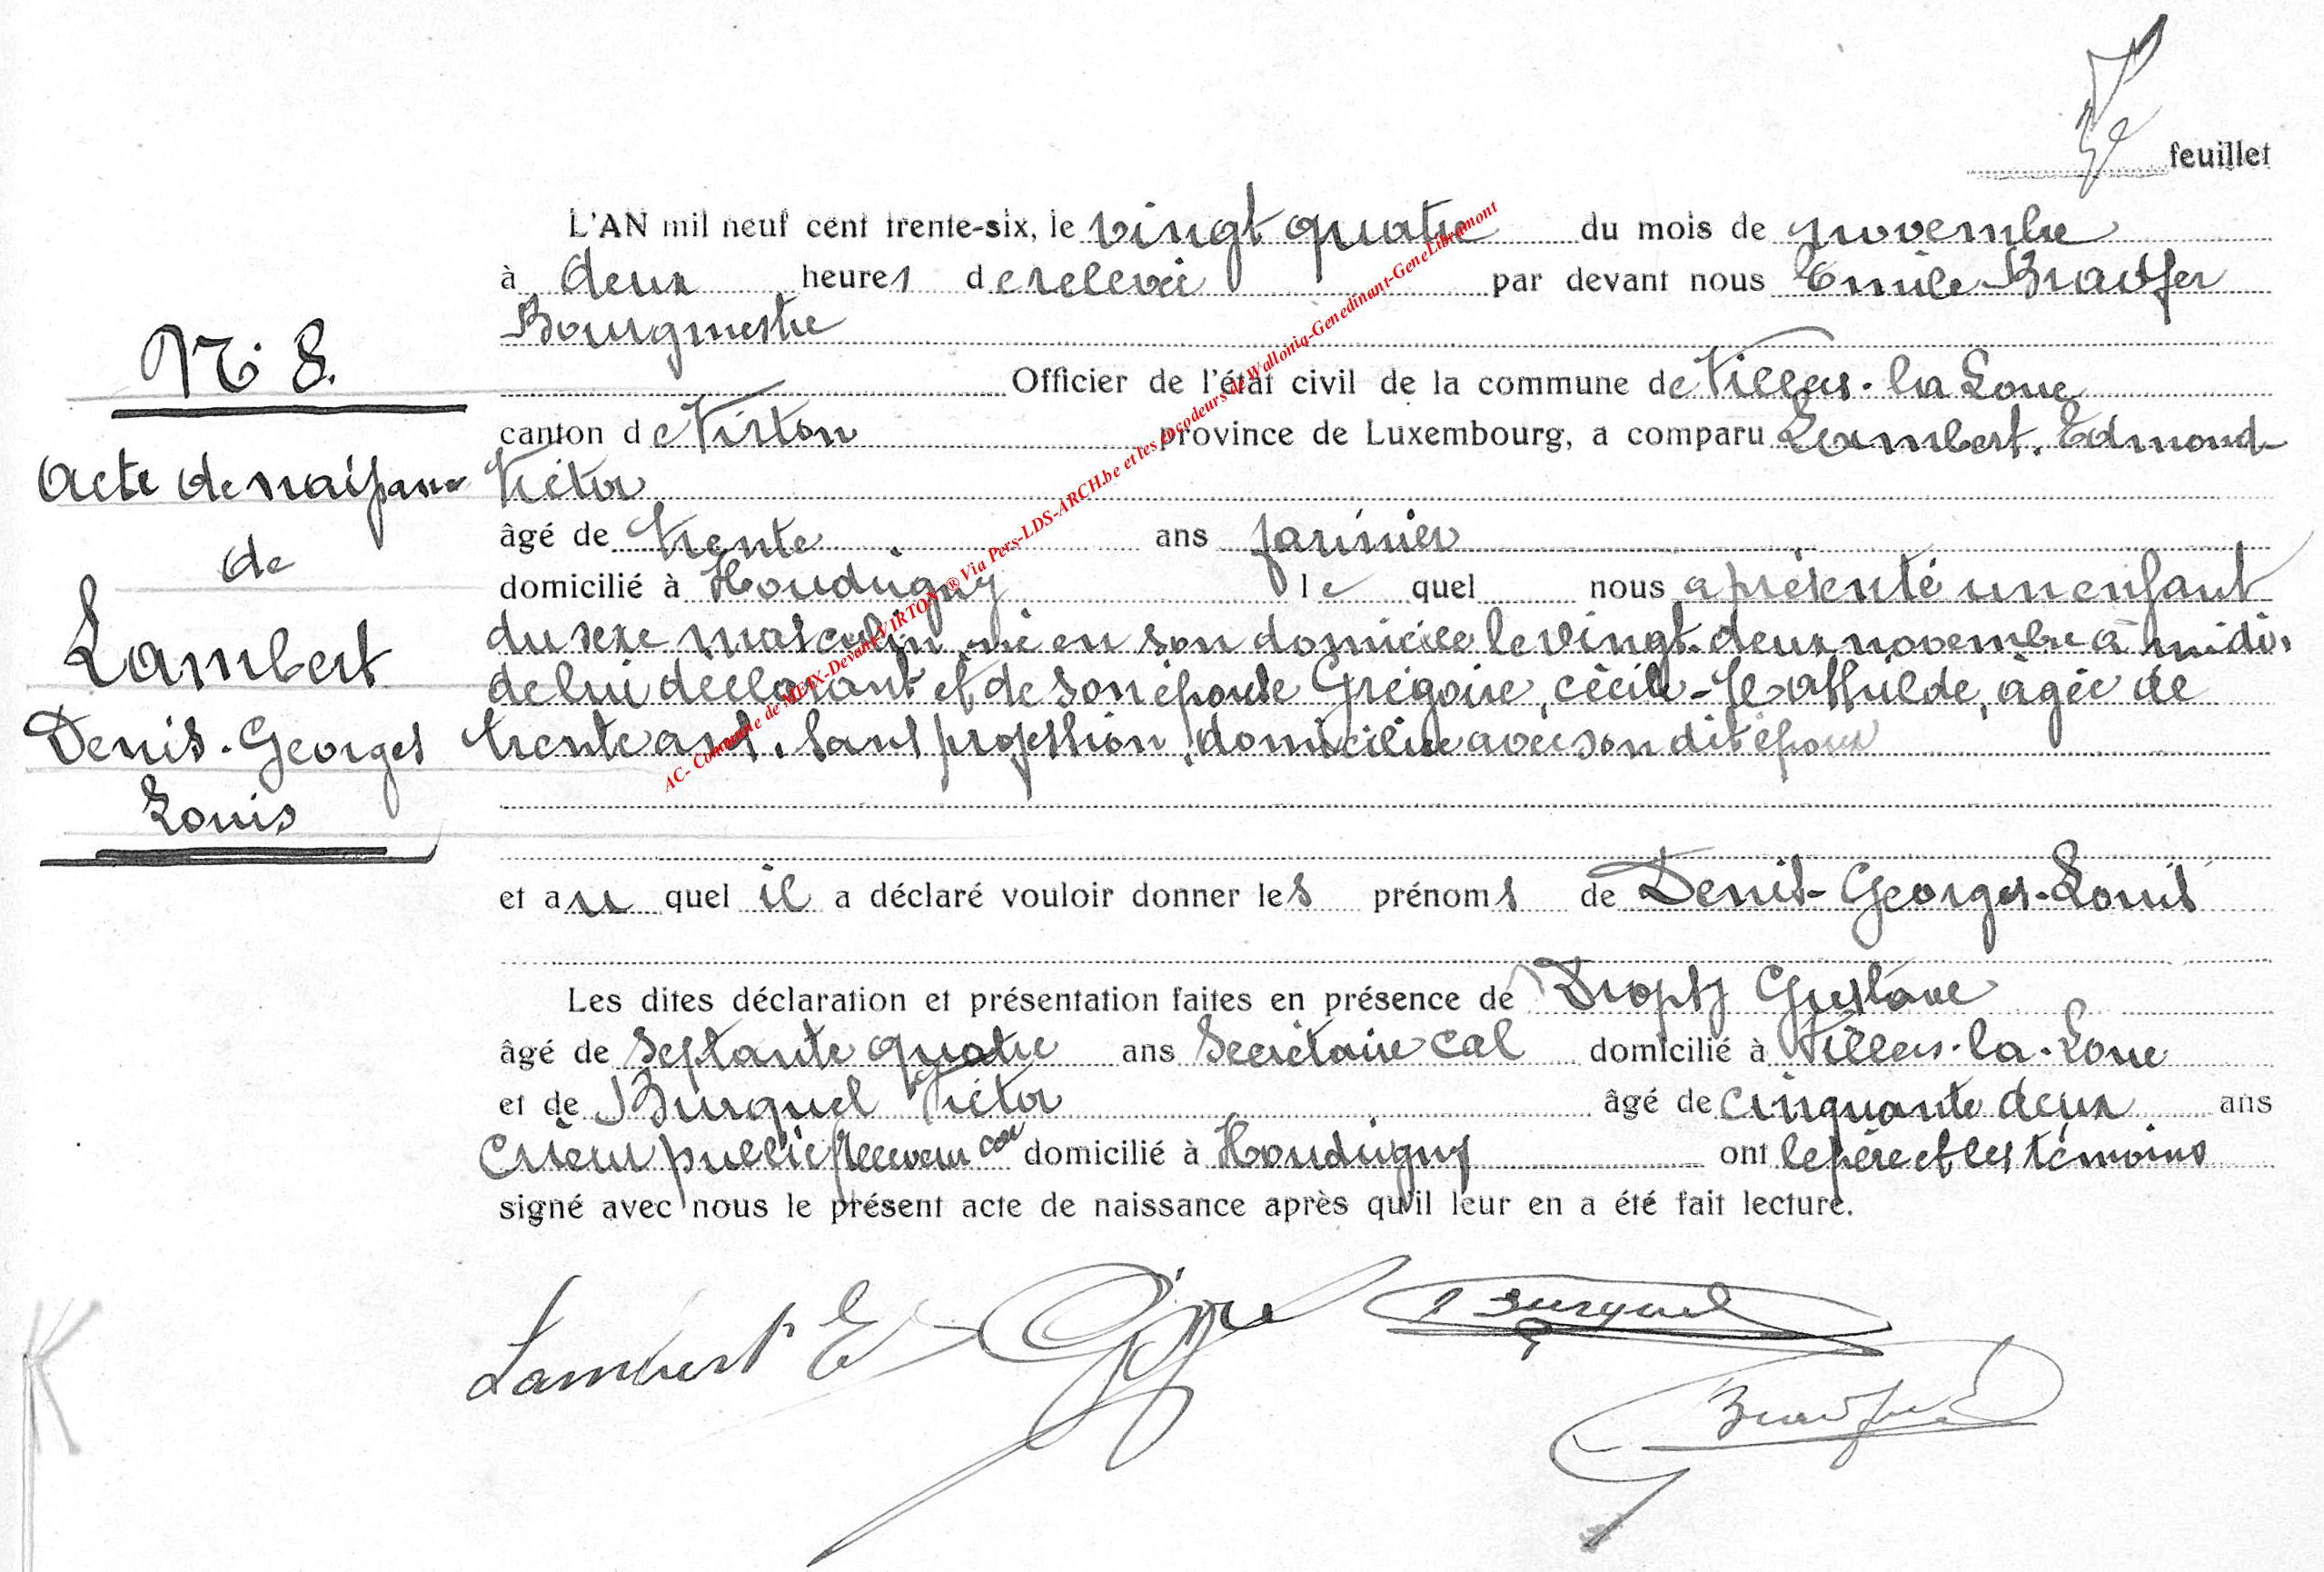 5e feuillet
L'AN mil neuf cent trente-six, le vingt quatre du mois de novembre
à deux heures de relevée par devant nous Emile Bradfer
Bourgmestre
N° 8.
Officier de l'état civil de la commune de Villers-la Loue
canton de Virton province de Luxembourg, a comparu Lambert, Edmond-
Acte de naissance
Victor
de
âgé de trente ans
domicilié à Houdrigny lequel nous a présenté un enfant
Lambert
du sexe masculin, né en son domicile le vingt-deux novembre à midi,
de lui déclarant et de son épouse Grégoire, Cécile-Mathilde, âgée de
Denis-Georges
trente ans, sans profession, domiciliée avec son dit époux
Louis
et au quel il a déclaré vouloir donner les prénoms de Denis-Georges-Louis
Les dites déclaration et présentation faites en présence de Dropsy Gustave
âgé de septante quatre ans Secrétaire cal domicilié à Villers-la-Loue
et de Burquel Victor âgé de cinquante deux ans
Crieur public Receveur cal domicilié à Houdrigny ont le père et les témoins
signé avec nous le présent acte de naissance après qu'il leur en a été fait lecture.
Lambert E
Burquel
Bradfer
AC- Commune de MEIX-Devant-VIRTON ® Via Pers-LDS-ARCH.be et les encodeurs de Wallonia-Genedinant-GeneLibramont